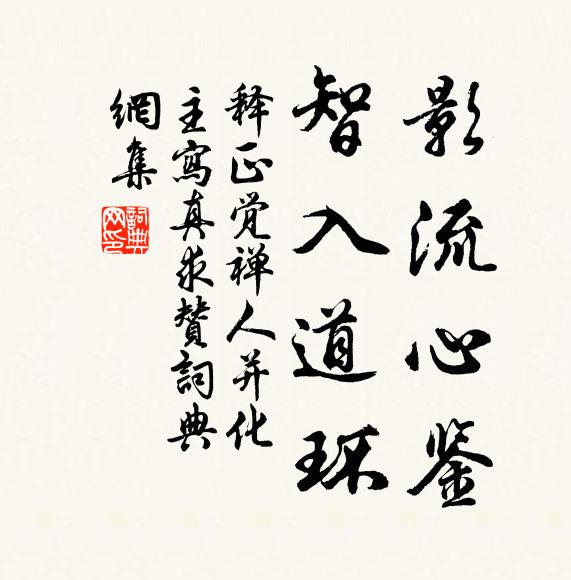 影流心鉴
智入道环
释正觉禅人并化
主寫真求贊詞典
網集
詞典网印